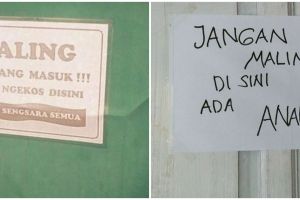 ALING
ANG MASUK !!!
NGEKOS DISINI
SENGSARA SEMUA
JANGAN
MALIN
DI SINI
ADA
ANA